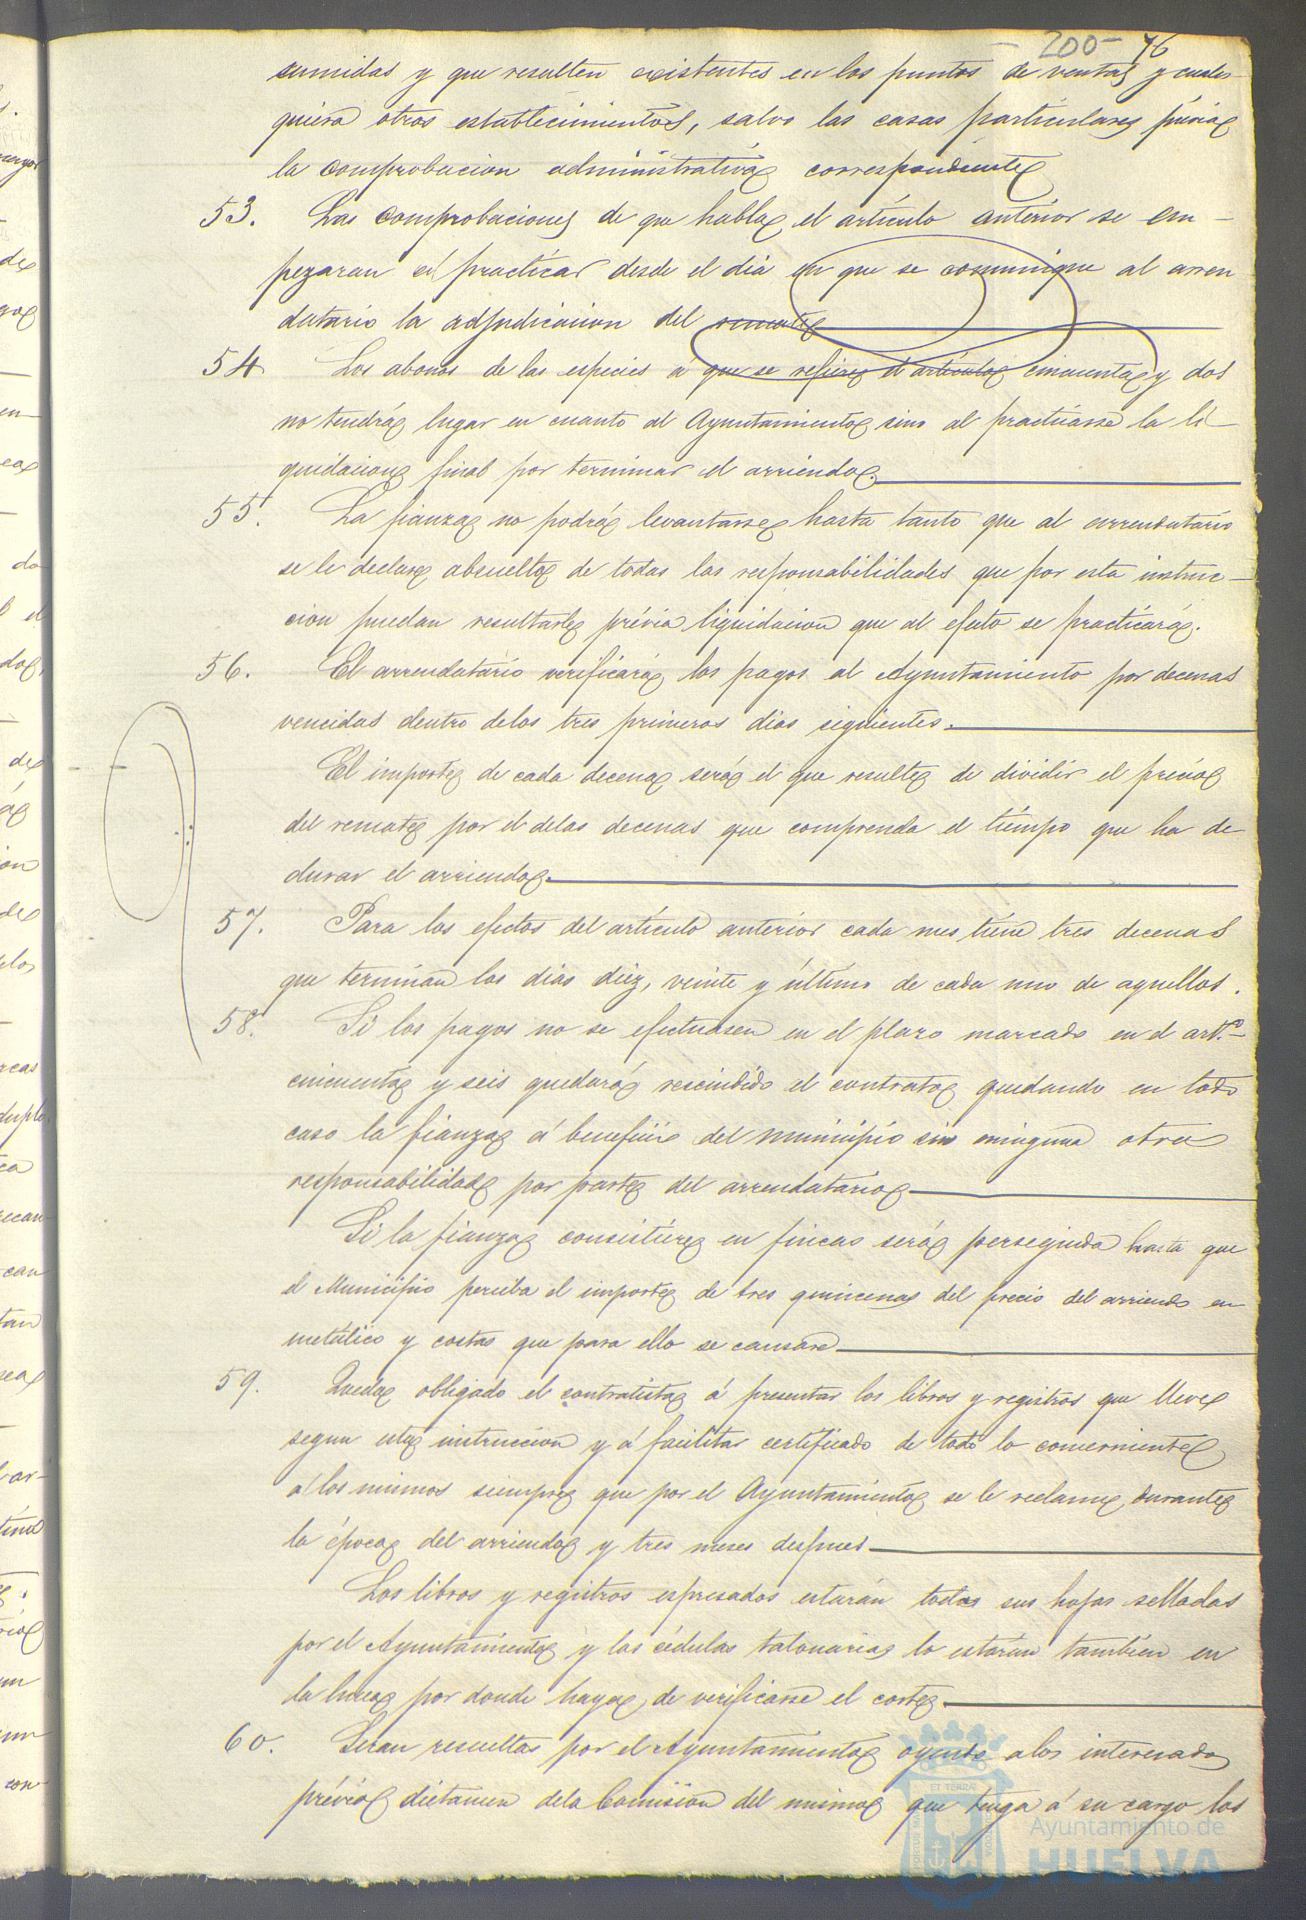 - 200 - 76
sumidas y que resulten existentes en los puntos de ventas y cuales-
quiera otros establecimientos, salvo las casas particulares prévia
la comprobacion administrativa correspondiente
53. Las comprobaciones de que habla el artículo anterior se em-
pezaran á practicar desde el dia en que se comunique al arren
datario la adjudicacion del remate
54 Los abonos de las especies á que se refiere el artículo cincuenta y dos
no tendrá lugar en cuanto al Ayuntamiento sino al practicarse la li-
quidacion final por terminar el arriendo.
55. La fianza no podrá levantarse hasta tanto que al arrendatario
se le declare absuelto de todas las responsabilidades que por esta instruc-
cion puedan resultarle prévia liquidacion que al efecto se practicará.
56. El arrendatário verificará los pagos al Ayuntamiento por decenas
vencidas dentro delos tres primeros dias siguientes.
El importe de cada decena será el que resulte de dividir el précio
del remate por el delas decenas que comprenda el tiempo que ha de
durar el arriendo.
57. Para los efectos del artículo anterior cada mes tiene tres decenas
que terminan los dias diez, veinte y último de cada uno de aquellos.
58. Si los pagos no se efectuasen en el plazo marcado en el artº-
cincuenta y seis quedará rescindido el contrato quedando en todo
caso la fianza á beneficio del municipio sin ninguna otra
responsabilidad por parte del arrendatario
Si la fianza consistiere en fincas será perseguida hasta que
el Municipio perciba el importe de tres quincenas del precio del arriendo en
metálico y costas que para ello se causare
59. Queda obligado el contratista á presentar los libros y registros que lleve
segun esta instruccion y á facilitar certificado de todo lo concerniente
á los mismos siempre que por el Ayuntamiento se le reclame, durante
la época del arriendo y tres meses despues
Los libros y registros espresados estarán todas sus hojas selladas
por el Ayuntamiento y las cédulas talonarias lo estarán tambien en
la linea por donde haya de verificarse el corte.
60. Seran resueltas por el Ayuntamiento oyendo alos interesados
prévio dictamen dela Comision del mismo que tenga á su cargo los
Ayuntamiento de
HUELVA